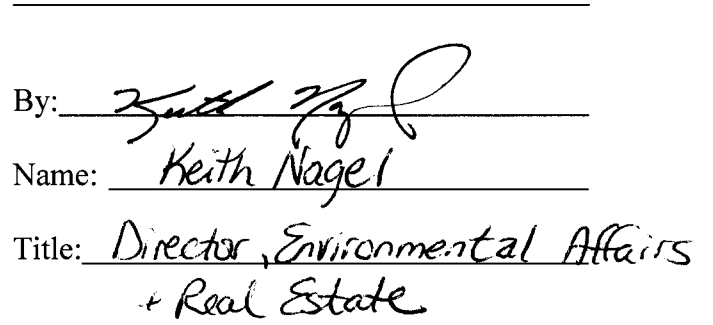 By: Keith Nagel
Name: Keith Nagel
Title: Director, Environmental Affairs
+ Real Estate